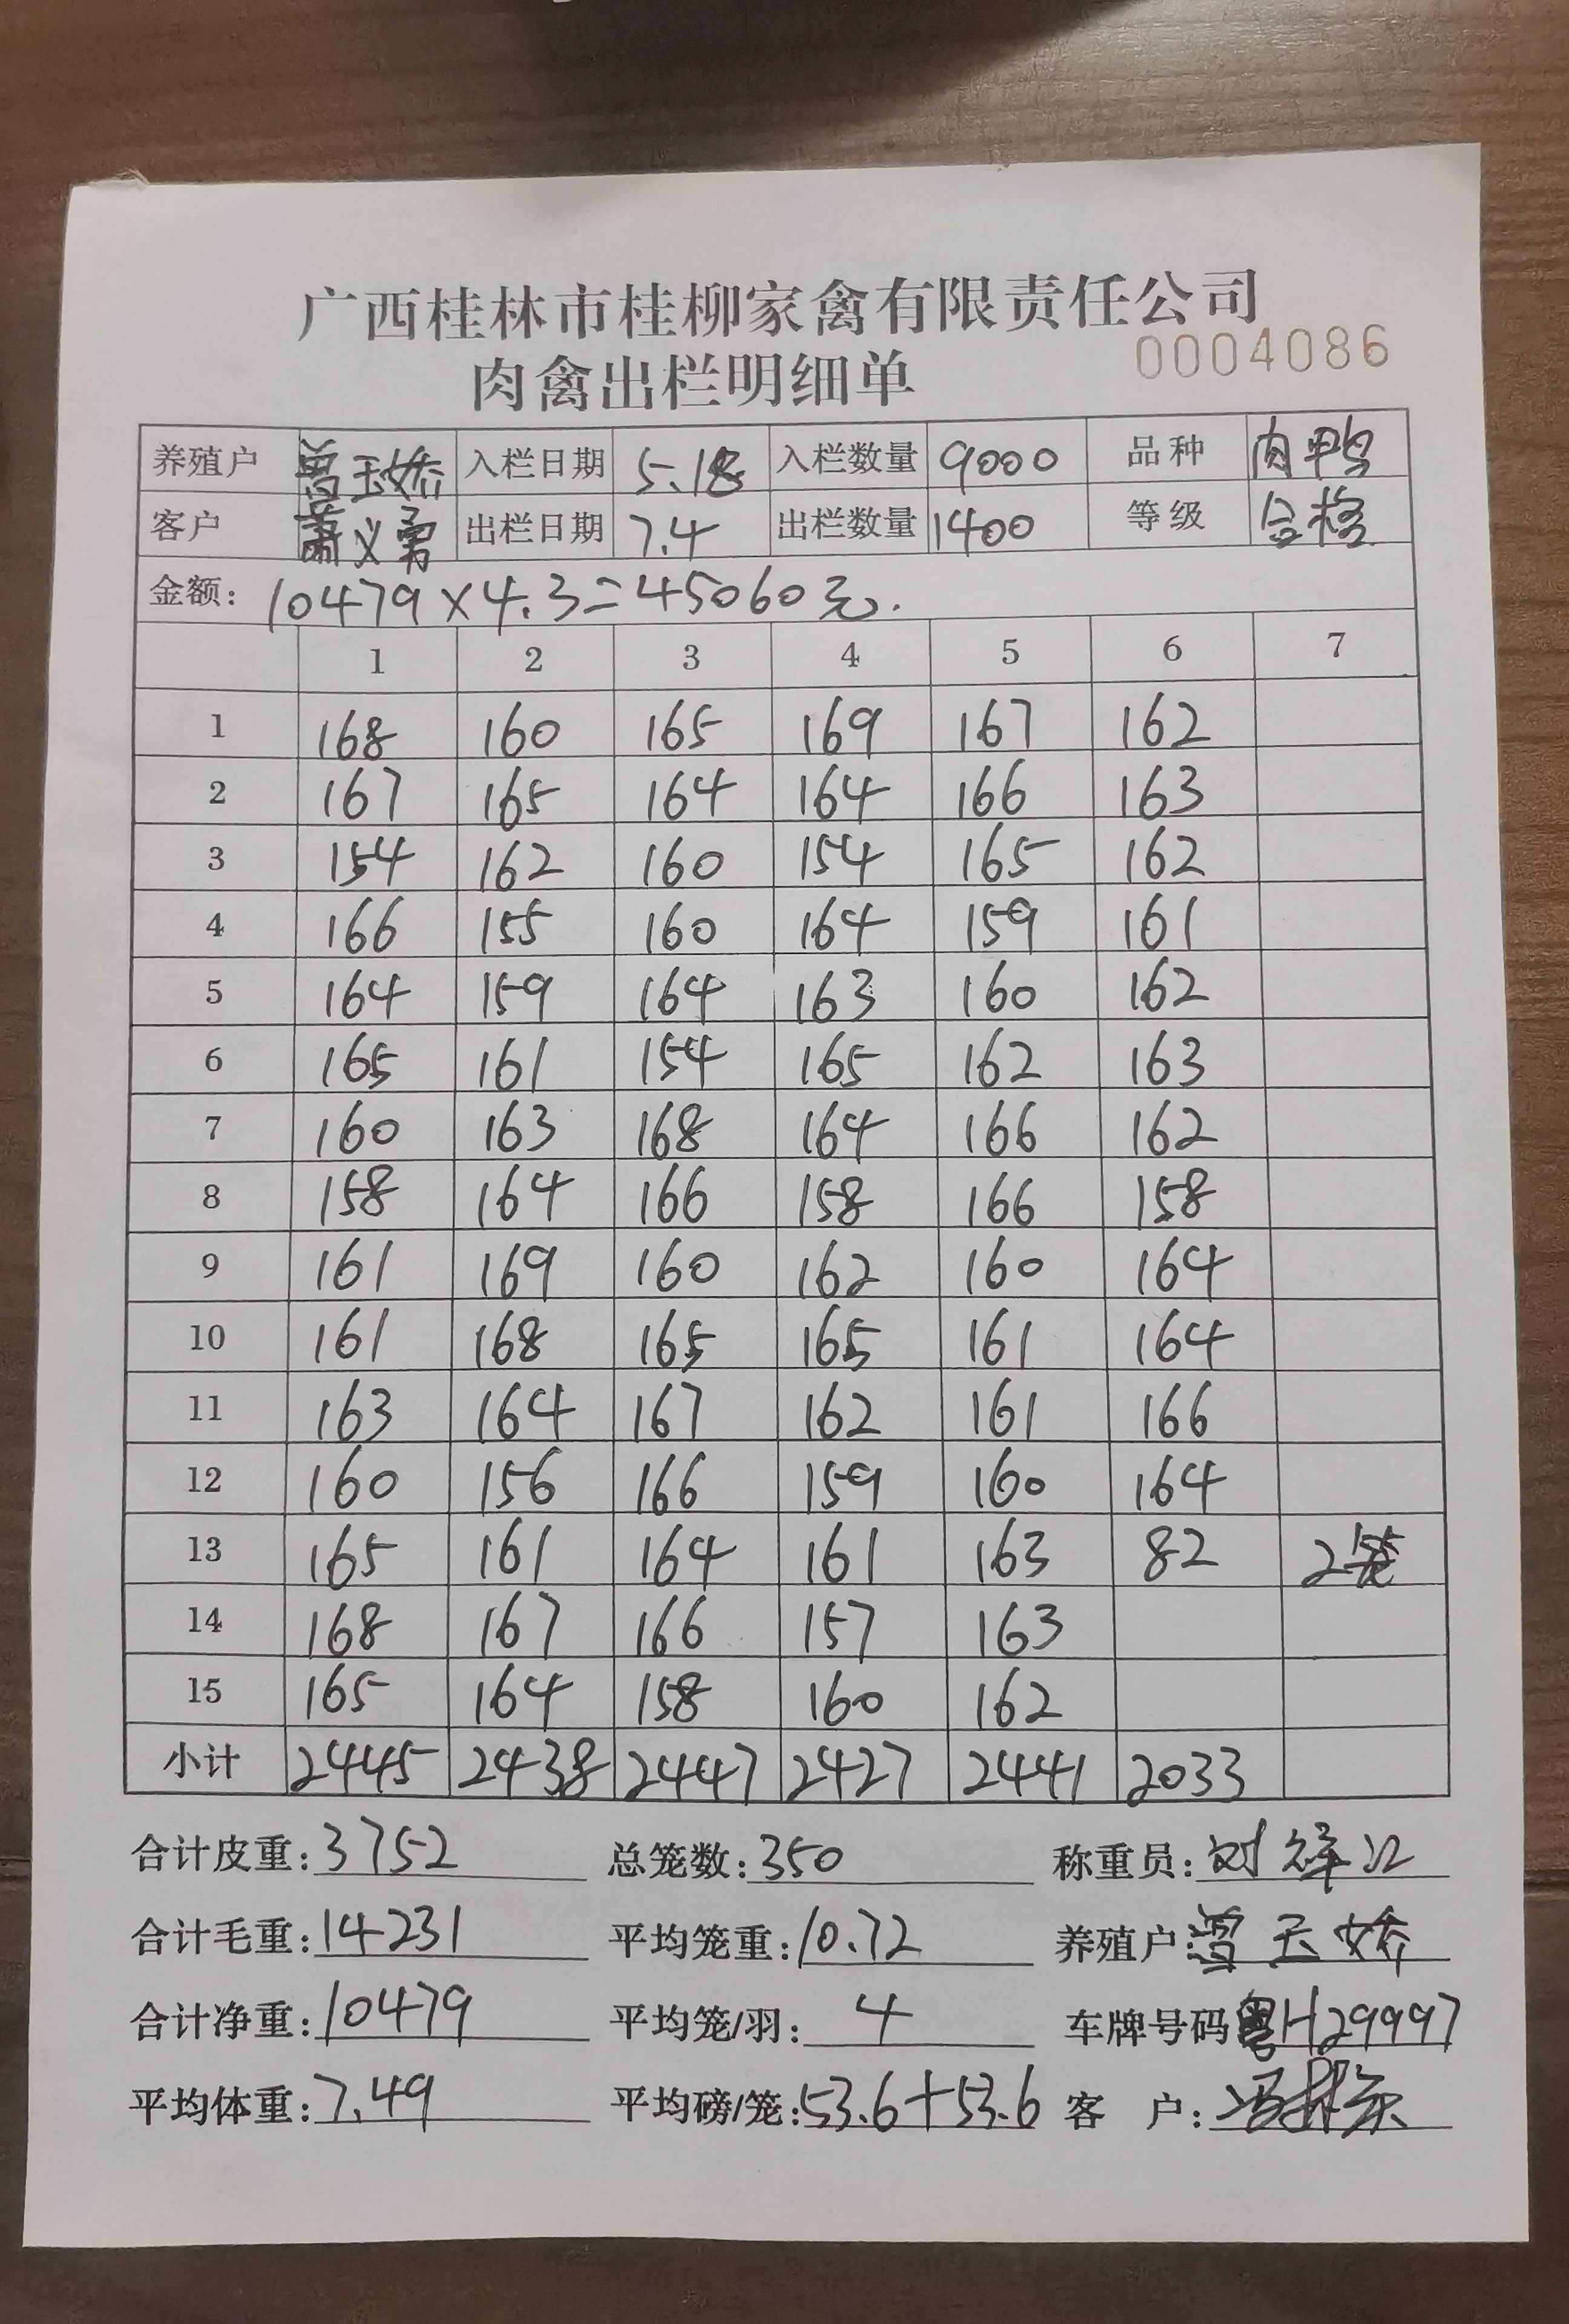 广西桂林市桂柳家禽有限责任公司
肉禽出栏明细单 0004086
养殖户 曾玉娇 入栏日期 5.18 入栏数量 9000 品种 肉鸭
客户 萧义勇 出栏日期 7.4 出栏数量 1400 等级 合格
金额: 10479×4.3=45060元.
1 2 3 4 5 6 7
1 168 160 165 169 167 162
2 167 165 164 164 166 163
3 154 162 160 154 165 162
4 166 155 160 164 159 161
5 164 159 164 163 160 162
6 165 161 154 165 162 163
7 160 163 168 164 166 162
8 158 164 166 158 166 158
9 161 169 160 162 160 164
10 161 168 165 165 161 164
11 163 164 167 162 161 166
12 160 156 166 159 160 164
13 165 161 164 161 163 82 2笼
14 168 167 166 157 163
15 165 164 158 160 162
小计 2445 2438 2447 2427 2441 2033
合计皮重: 3752 总笼数: 350 称重员: 刘
合计毛重: 14231 平均笼重: 10.72 养殖户: 曾玉娇
合计净重: 10479 平均笼/羽: 4 车牌号码 粤H29997
平均体重: 7.49 平均磅/笼: 53.6+53.6 客户: 冯